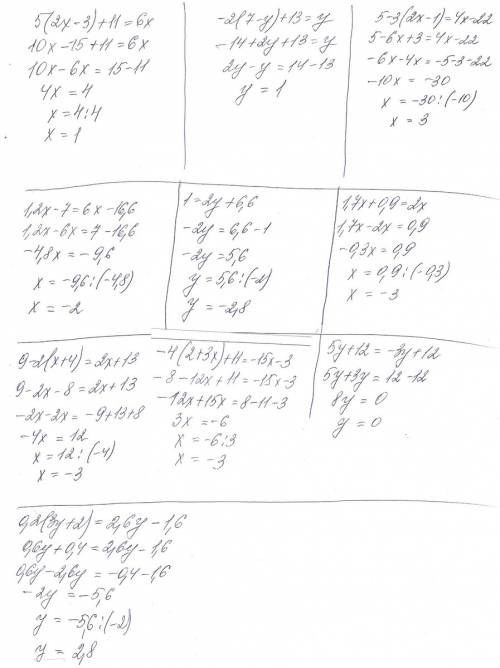 5(2x-3)+11=6x
10x-15+11=6x
10x-6x=15-11
4x=4
x=4:4
x=1
-2(7-y)+13=y
-14+2y+13=y
2y-y=14-13
y=1
5-3(2x-1)=4x-22
5-6x+3=4x-22
-6x-4x=-5-3-22
-10x=-30
x=-30:(-10)
x=3
1,2x-7=6x-16,6
1,2x-6x=7-16,6
-4,8x=-9,6
x=-9,6:(-4,8)
x=-2
1=2y+6,6
-2y=6,6-1
-2y=5,6
y=5,6:(-2)
y=-2,8
1,7x+0,9=2x
1,7x-2x=0,9
-0,3x=0,9
x=0,9:(-0,3)
x=-3
9-2(x+4)=2x+13
9-2x-8=2x+13
-2x-2x=-9+13+8
-4x=12
x=12:(-4)
x=-3
-4(2+3x)+11=-15x-3
-8-12x+11=-15x-3
-12x+15x=8-11-3
3x=-6
x=-6:3
x=-3
5y+12=-3y+12
5y+3y=12-12
8y=0
y=0
0,2(3y+2)=2,6y-1,6
0,6y+0,4=2,6y-1,6
0,6y-2,6y=-0,4-1,6
-2y=-5,6
y=-5,6:(-2)
y=2,8